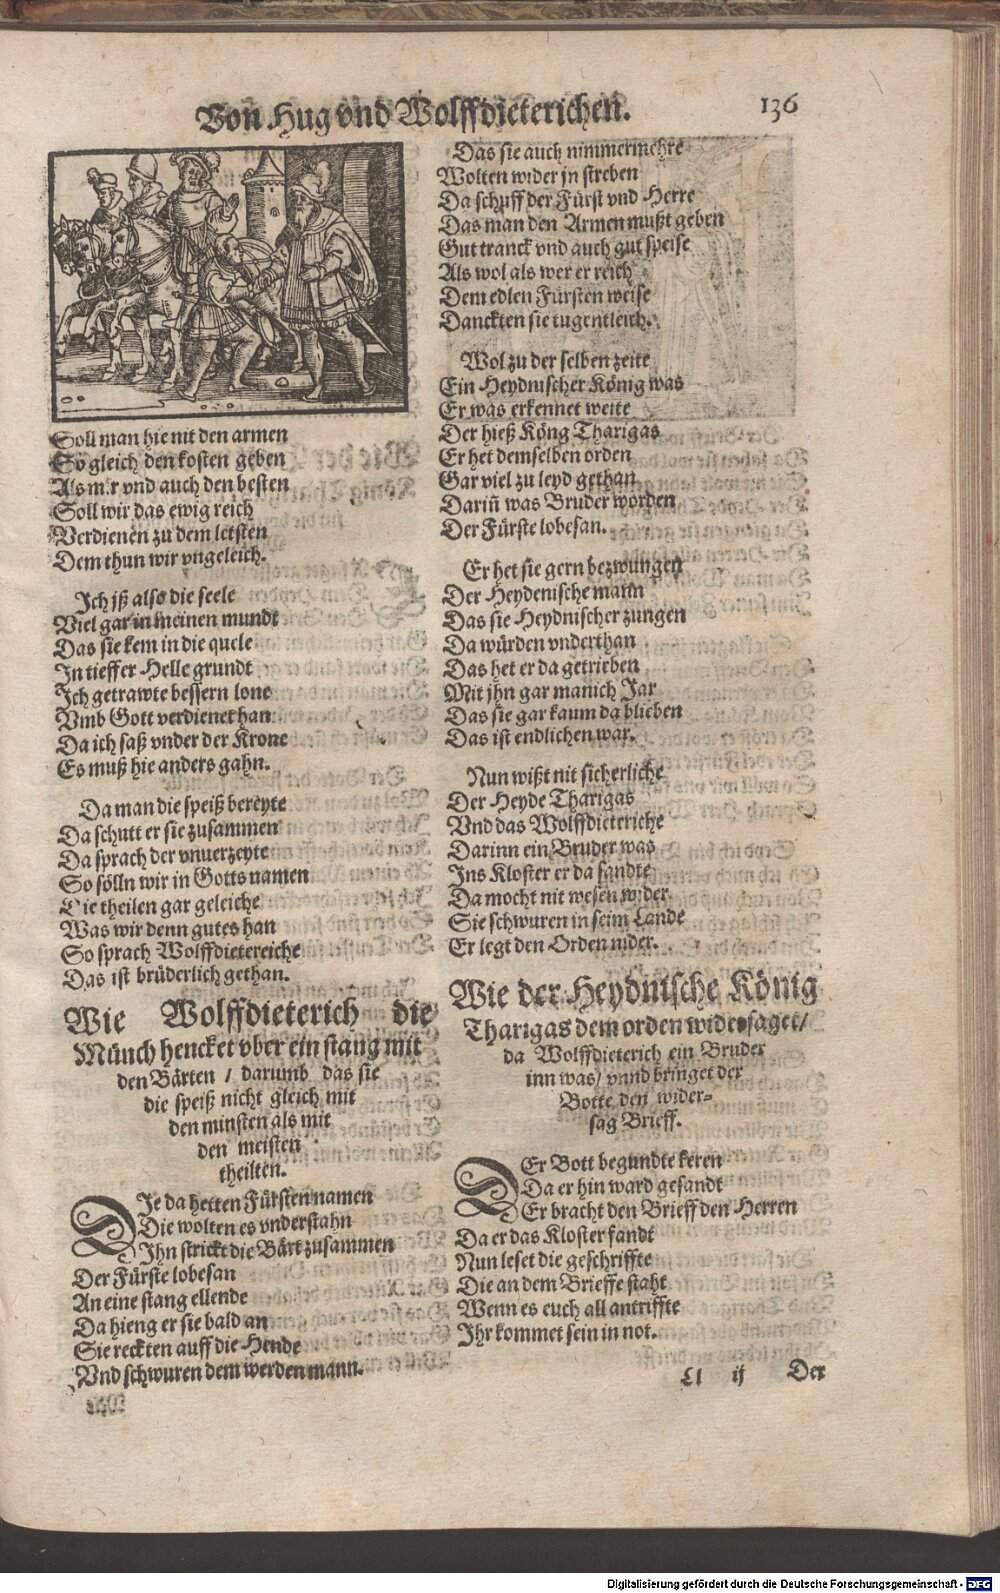 Von Hug vnd Wolffdieterichen.
136
Soll man hie nit den armen
So gleich den kosten geben
Als mir vnd auch den besten
Soll wir das ewig reich
Verdienen zu dem letsten
Dem thun wir vngeleich.
Ich jß also die seele
Viel gar in meinen mundt
Das sie kem in die quele
In tieffer Helle grundt
Ich getrawte bessern lone
Vmb Gott verdienet han
Da ich saß vnder der Krone
Es muß hie anders gahn.
Da man die speiß bereyte
Da schutt er sie zusammen
Da sprach der vnuerzeyte
So sölln wir in Gotts namen
Die theilen gar geleiche
Was wir denn gutes han
So sprach Wolffdietereiche
Das ist brüderlich gethan.
Wie Wolffdieterich die
Münch hencket vber ein stang mit
den Bärten / darumb das sie
die speiß nicht gleich mit
den minsten als mit
den meisten
theilten.
DIe da hetten Fürsten namen
Die wolten es vnderstahn
Ihn strickt die Bärt zusammen
Der Fürste lobesan
An eine stang ellende
Da hieng er sie bald an
Sie reckten auff die Hende
Vnd schwuren dem werden mann.
Das sie auch nimmermehre
Wolten wider jn streben
Da schuff der Fürst vnd Herre
Das man den Armen mußt geben
Gut tranck vnd auch gut speise
Als wol als wer er reich
Dem edlen Fürsten weise
Danckten sie tugentleich.
Wol zu der selben zeite
Ein Heydnischer König was
Er was erkennet weite
Der hieß Köng Tharigas
Er het demselben orden
Gar viel zu leyd gethan
Dariñ was Bruder worden
Der Fürste lobesan.
Er het sie gern bezwungen
Der Heydenische mann
Das sie Heydnischer zungen
Da würden vnderthan
Das het er da getrieben
Mit jhn gar manich Jar
Das sie gar kaum da blieben
Das ist endlichen war.
Nun wißt nit sicherliche
Der Heyde Tharigas
Vnd das Wolffdieteriche
Darinn ein Bruder was
Ins Kloster er da sandte
Da mocht nit wesen wider
Sie schwuren in seim Lande
Er legt den Orden nider.
Wie der Heydnische König
Tharigas dem orden widersaget /
da Wolffdieterich ein Bruder
inn was / vnnd bringet der
Botte den wider-
sag Brieff.
DEr Bott begundte keren
Da er hin ward gesandt
Er bracht den Brieff den Herren
Da er das Kloster fandt
Nun leset die geschriffte
Die an dem Brieffe staht
Wenn es euch all antriffte
Ihr kommet sein in not.
Ll ij Der
Digitalisierung gefördert durch die Deutsche Forschungsgemeinschaft - DFG